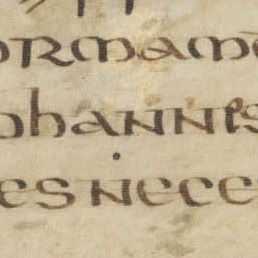 ormam
ohannis
es nece